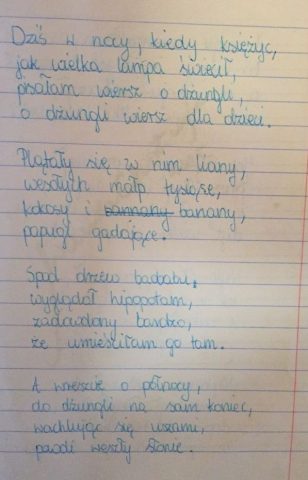 Dziś w nocy, kiedy księżyc,
jak wielka lampa świecił,
pisałam wiersz o dżungli,
o dżungli wiersz dla dzieci.
Plątały się w nim liany,
wesołych małp tysiące,
kokosy i banany,
papugi gadające.
Spod drzew baobabu,
wyglądał hipopotam,
zadowolony bardzo,
że umieściłam go tam.
A wreszcie o północy,
do dżungli na sam koniec,
wachlując się uszami,
wesoły słonie.